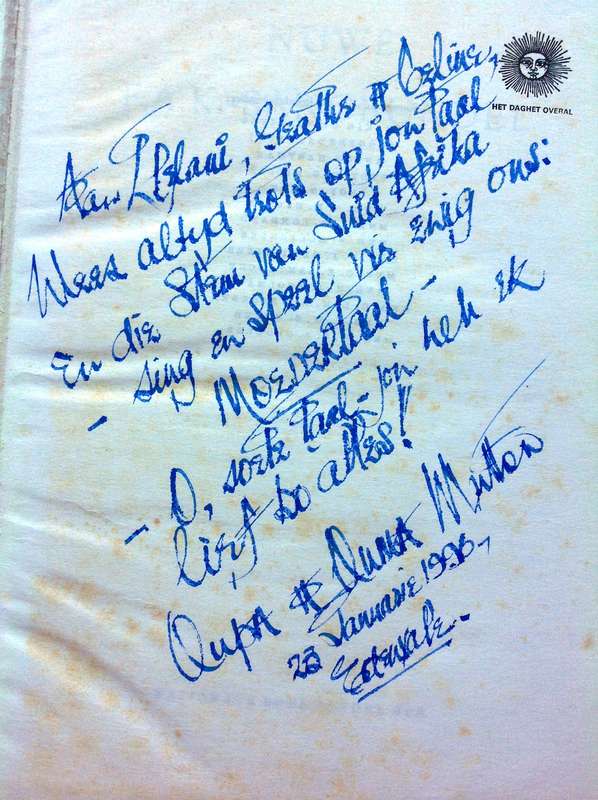 HET DAGHET OVERAL
Aan
Wees altyd trots op jou Taal
En die Stem van Suid Afrika
- sing en speel vir ewig ons:
MOEDERTAAL -
- O, soete Taal - jou heb ek
lief bo alles!
Oupa & Ouma
23 Januarie 1996,
Edenvale.